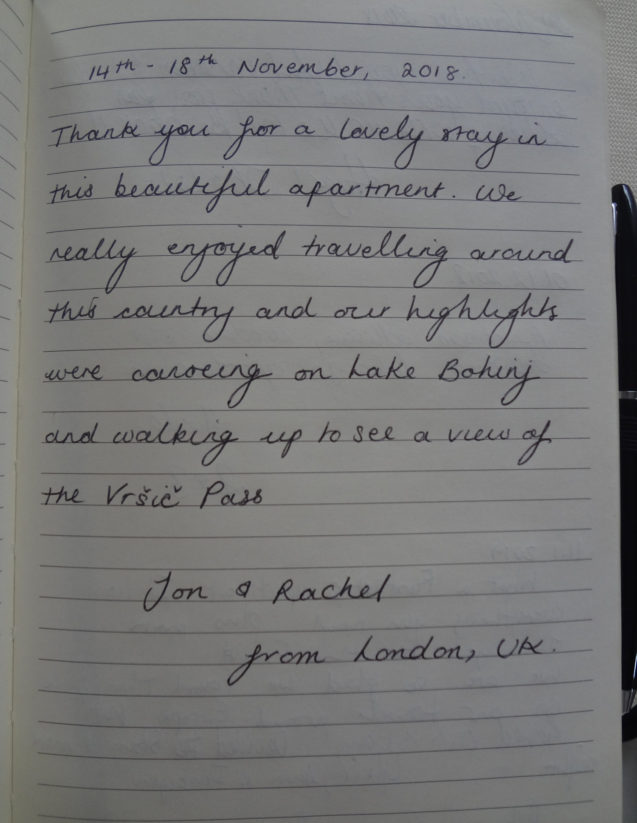 14th - 18th November, 2018.
Thank you for a lovely stay in
this beautiful apartment. We
really enjoyed travelling around
this country and our highlights
were canoeing on Lake Bohinj
and walking up to see a view of
the Vršič Pass
Jon & Rachel
from London, UK.